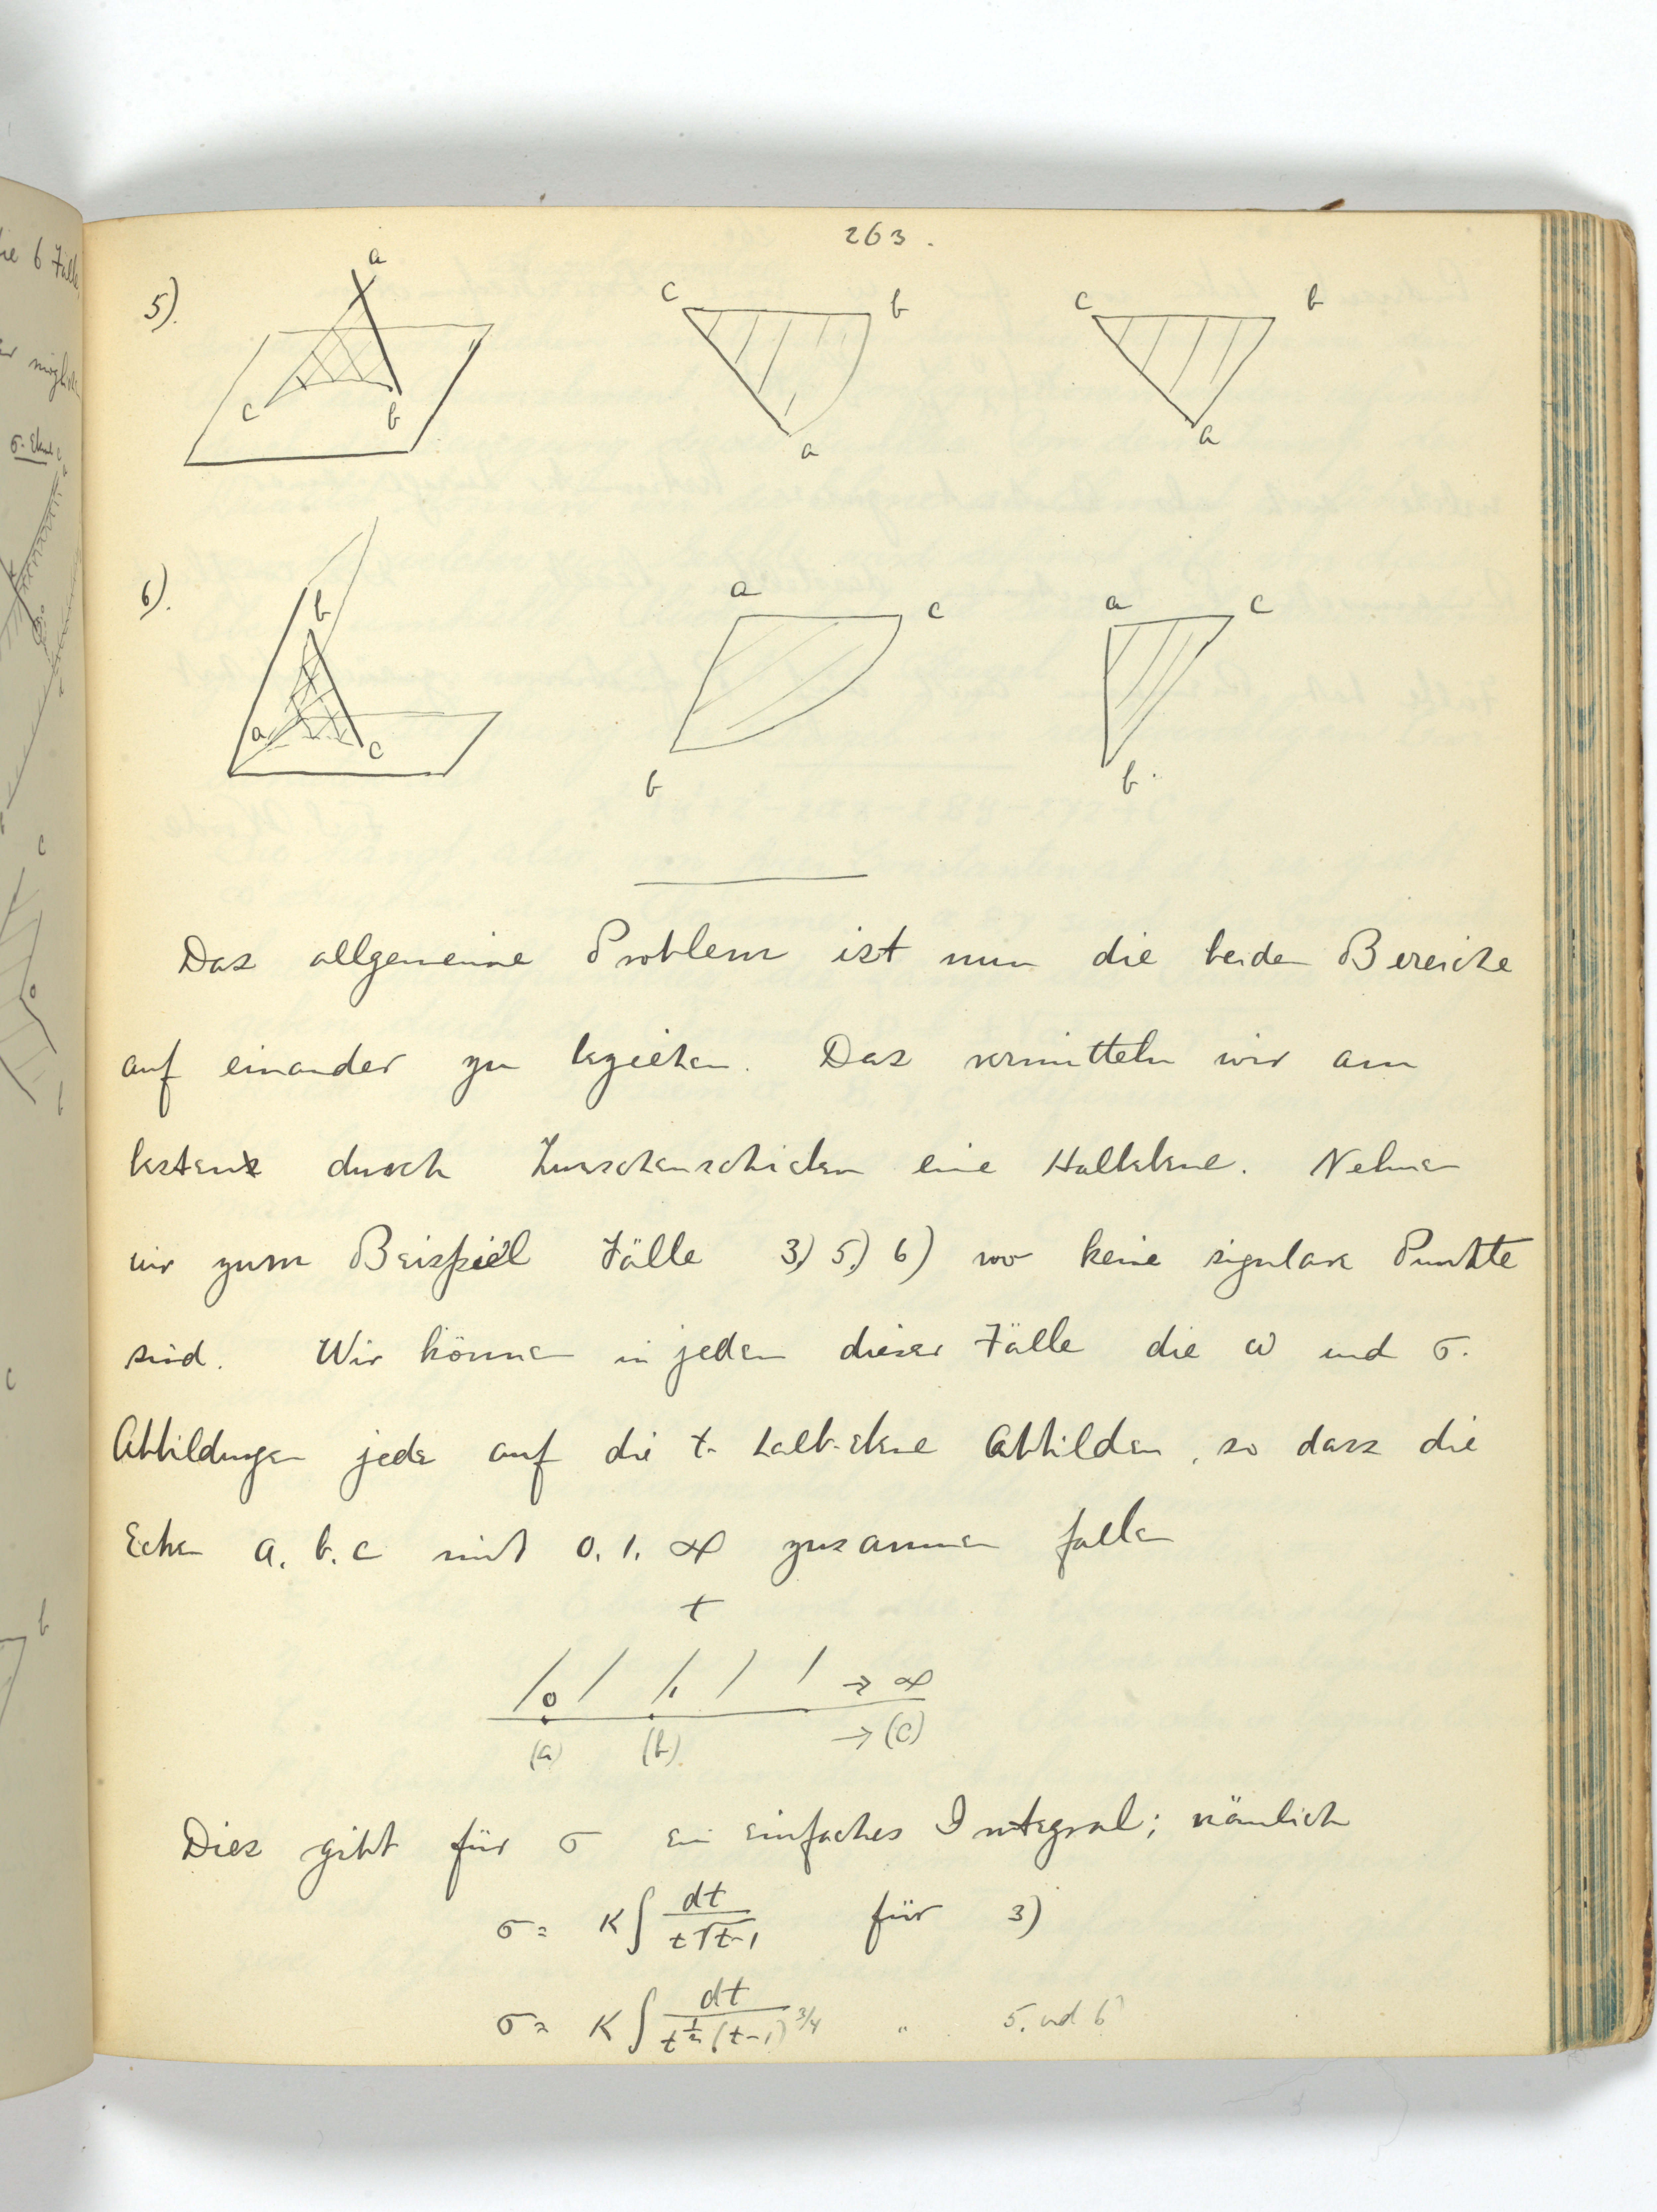 263.
5).
a
c
b
c
b
a
c
b
a
6).
b
a
c
a
c
b
a
c
b.
Das allgemeine Problem ist nun die beiden Bereiche
auf einander zu beziehen. Das vermitteln wir am
besten durch Zwischenschieben eine Halbebene. Nehmen
wir zum Beispiel Fälle 3) 5) 6) wo keine signlare Punkte
sind. Wir können in jedem dieser Fälle die ω und σ.
Abbildungen jede auf die t-halb-ebene Abbilden, so dass die
Ecken a. b. c mit 0. 1. ∞ zusammen fallen
t
0 1 → ∞
(a) (b) → (c)
Dies gibt für σ ein einfaches Integral; nämlich
σ = K∫ dt / t√t-1 für 3)
σ = K∫ dt / t^½ (t-1)^3/4 " 5. und 6